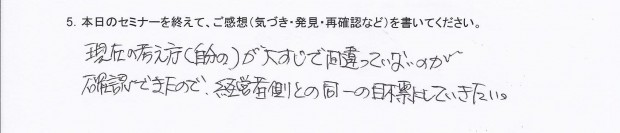 5. 本日のセミナーを終えて、ご感想(気づき・発見・再確認など)を書いてください。
現在の考え方(自分の)が大すじで間違っていないのが
確認できたので、経営者側との同一の目標にしていきたい。